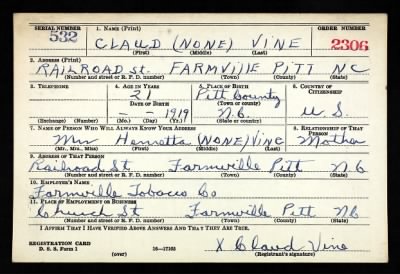 SERIAL NUMBER 1. NAME (Print) ORDER NUMBER
532 CLAUD (NONE) VINE 2306
(First) (Middle) (Last)
2. ADDRESS (Print)
RAILROAD St. FARMVILLE PITT NC
(Number and street or R. F. D. number) (Town) (County) (State)
3. TELEPHONE 4. AGE IN YEARS 5. PLACE OF BIRTH 6. COUNTRY OF CITIZENSHIP
21 Pitt County
DATE OF BIRTH (Town or county)
— — 1919 N.C. U.S.
(Exchange) (Number) (Mo.) (Day) (Yr.) (State or country)
7. NAME OF PERSON WHO WILL ALWAYS KNOW YOUR ADDRESS 8. RELATIONSHIP OF THAT PERSON
Mrs Henretta (NONE) Vine Mother
(Mr., Mrs., Miss) (First) (Middle) (Last)
9. ADDRESS OF THAT PERSON
Railroad St Farmville Pitt N.C
(Number and street or R. F. D. number) (Town) (County) (State)
10. EMPLOYER'S NAME
Farmville Tobacco Co
11. PLACE OF EMPLOYMENT OR BUSINESS
Church St Farmville Pitt NC
(Number and street or R. F. D. number) (Town) (County) (State)
I AFFIRM THAT I HAVE VERIFIED ABOVE ANSWERS AND THAT THEY ARE TRUE.
REGISTRATION CARD
D. S. S. Form 1 16—17105 X Claud Vine
(over) (Registrant's signature)